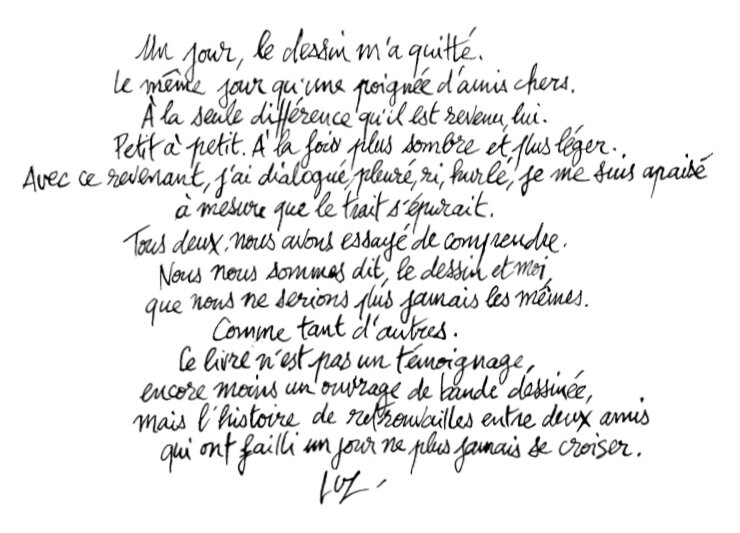 Un jour, le dessin m'a quitté.
Le même jour qu'une poignée d'amis chers.
À la seule différence qu'il est revenu, lui.
Petit à petit. À la fois plus sombre et plus léger.
Avec ce revenant, j'ai dialogué, pleuré, ri, hurlé, je me suis apaisé
à mesure que le trait s'épurait.
Tous deux, nous avons essayé de comprendre.
Nous nous sommes dit, le dessin et moi,
que nous ne serions plus jamais les mêmes.
Comme tant d'autres.
Ce livre n'est pas un témoignage,
encore moins un ouvrage de bande dessinée,
mais l'histoire de retrouvailles entre deux amis
qui ont failli un jour ne plus jamais se croiser.
LUZ.